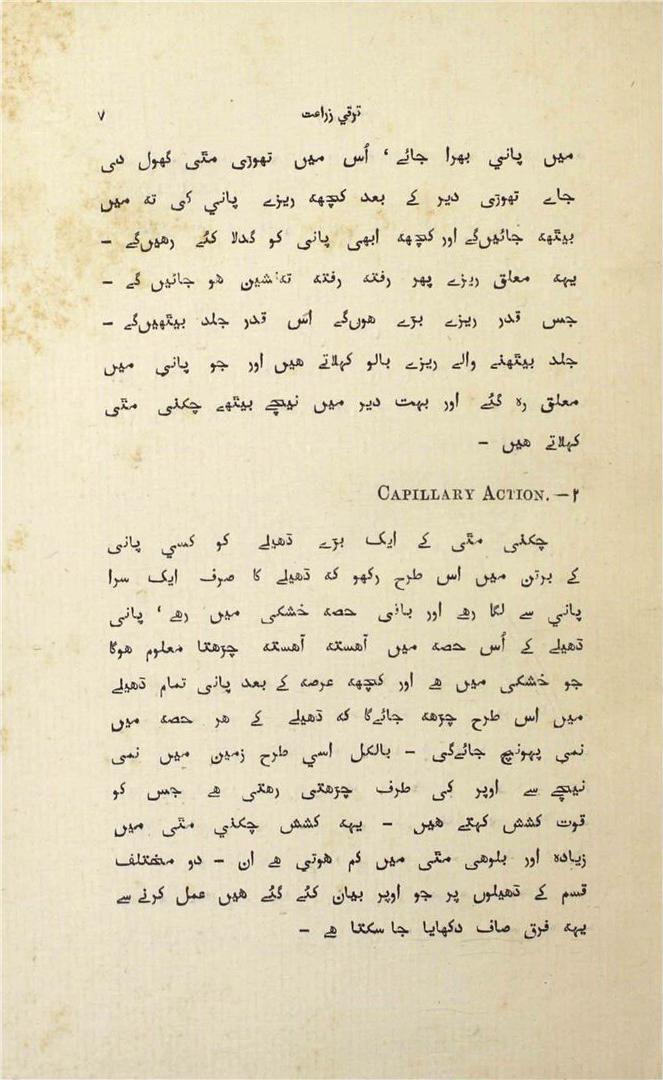 ترقي زراعت ۷
میں پاني بھرا جائے ' اُس میں تھوڑی مٹی گھول دی
جاے تھوڑی دیر کے بعد کچھہ ریزے پاني کی تہ میں
بیٹھہ جائیں‌گے اور کچھہ ابھی پانی کو گدلا کئے رھیں‌گے -
یہہ معلق ریزے پھر رفتہ رفتہ تہ نشین ھو جائیں گے -
جس قدر ریزے بڑے ھوں‌گے اس قدر جلد بیٹھیں‌گے -
جلد بیٹھنے والے ریزے بالو کہلاتے ھیں اور جو پاني میں
معلق رہ گئے اور بہت دیر میں نیچے بیٹھے چکنی مٹی
کہلاتے ھیں -
۲- CAPILLARY ACTION.
چکنی مٹی کے ایک بڑے ڈھیلے کو کسي پانی
کے برتن میں اس طرح رکھو کہ ڈھیلے کا صرف ایک سرا
پاني سے لگا رھے اور باقی حصہ خشکی میں رھے ' پانی
ڈھیلے کے اُس حصہ میں آھستہ آھستہ چڑھتا معلوم ھوگا
جو خشکی میں ھے اور کچھہ عرصہ کے بعد پانی تمام ڈھیلے
میں اس طرح چڑھہ جائے‌گا کہ ڈھیلے کے ھر حصہ میں
نمی پہونچ جائے‌گی - بالکل اسي طرح زمین میں نمی
نیچے سے اوپر کی طرف چڑھتی رھتی ھے جس کو
قوت کشش کہتے ھیں - یہہ کشش چکني مٹی میں
زیادہ اور بلوھی مٹی میں کم ھوتي ھے ان - دو مختلف
قسم کے ڈھیلوں پر جو اوپر بیان کئے گئے ھیں عمل کرنے سے
یہہ فرق صاف دکھایا جا سکتا ھے -